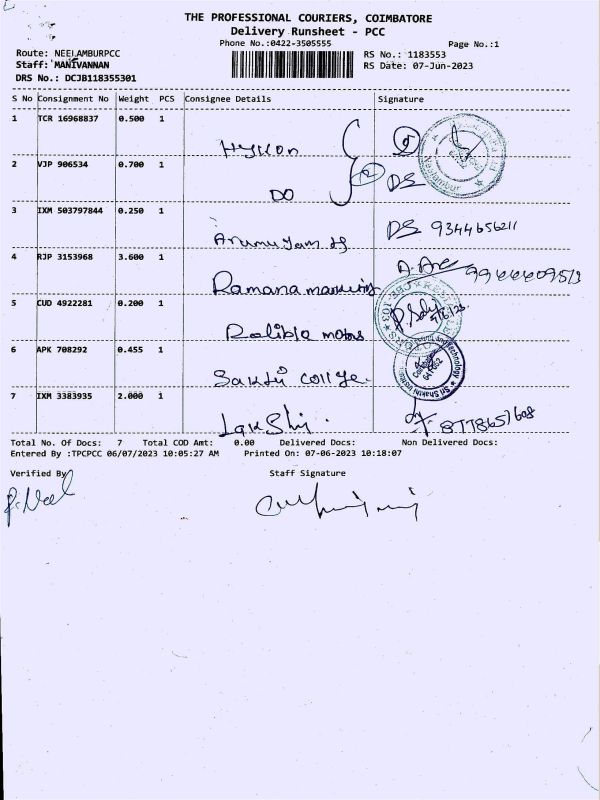 THE PROFESSIONAL COURIERS, COIMBATORE
Delivery Runsheet - PCC
Phone No.:0422-3505555
Page No.:1
Route: NEELAMBURPCC
Staff: MANIVANNAN
DRS No.: DCJB118355301
RS No.: 1183553
RS Date: 07-Jun-2023
S No Consignment No Weight PCS Consignee Details Signature
1 TCR 16968837 0.500 1
2 VJP 906534 0.700 1
DO DS
3 IXM 503797844 0.250 1
DS 9344656211
4 RJP 3153968 3.600 1
Ramana
5 CUD 4922281 0.200 1
Relible motors
6 APK 708292 0.455 1
Sakthi college.
7 IXM 3383935 2.000 1
Total No. Of Docs: 7 Total COD Amt: 0.00 Delivered Docs: Non Delivered Docs:
Entered By :TPCPCC 06/07/2023 10:05:27 AM Printed On: 07-06-2023 10:18:07
Verified By Staff Signature